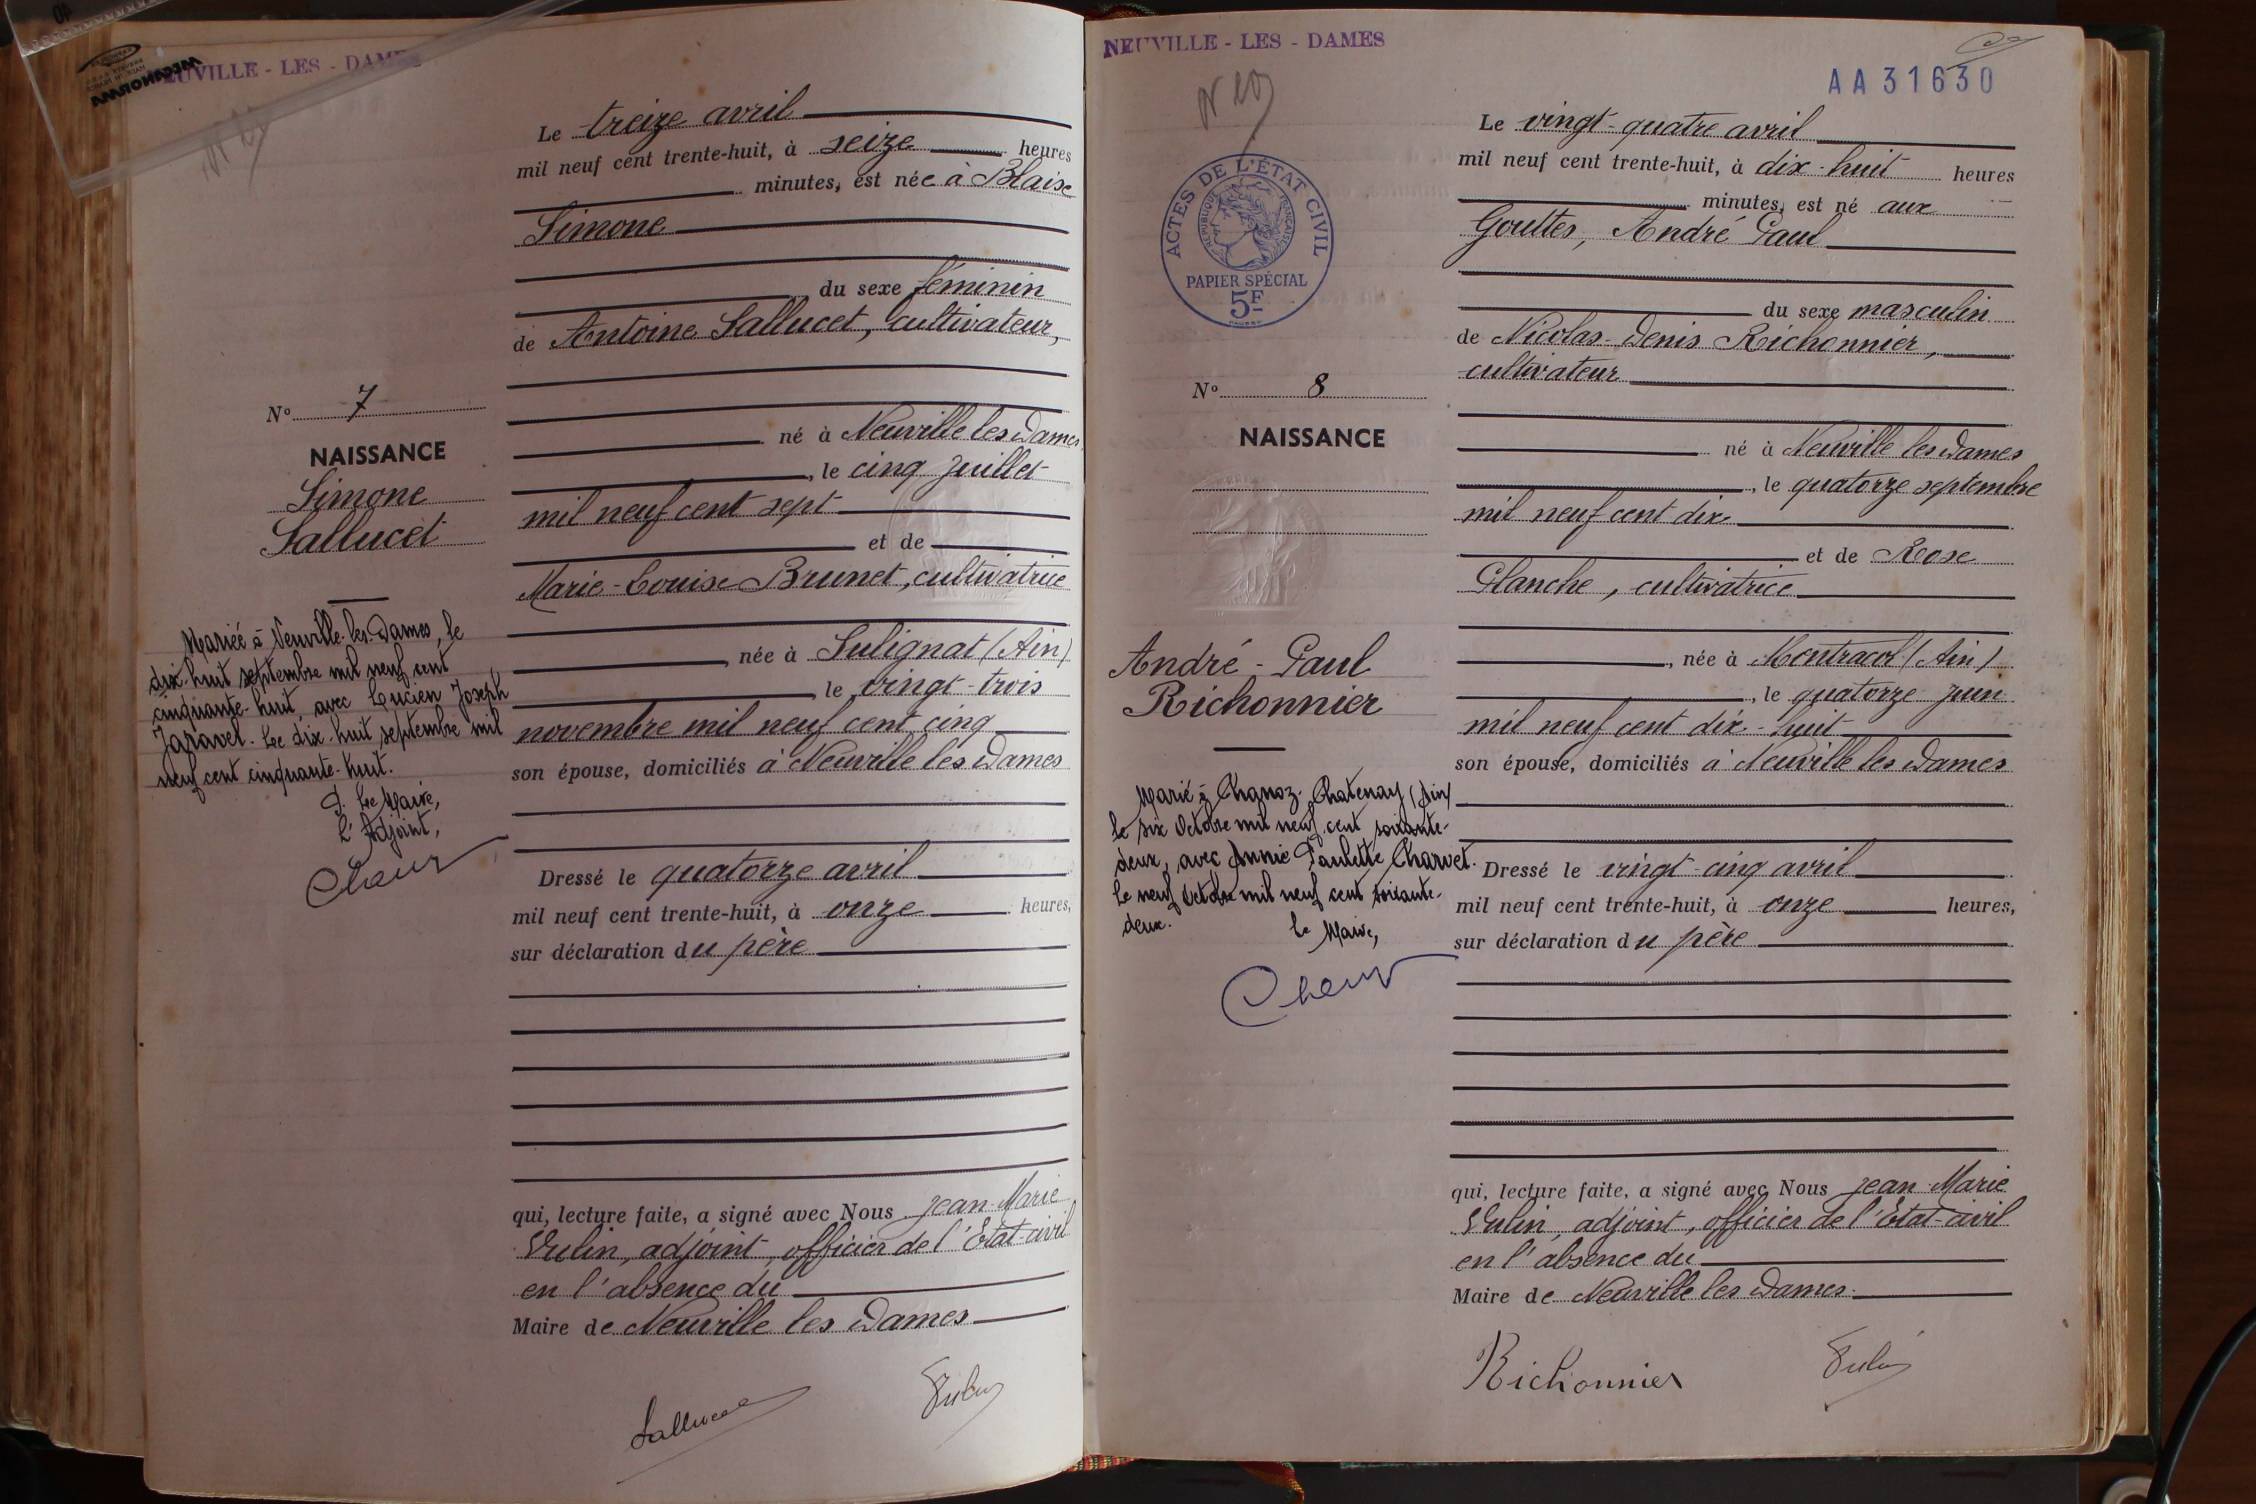 NEUVILLE - LES - DAMES
Le treize avril
mil neuf cent trente-huit, à seize heures
minutes, est née à Blaise
Simone
du sexe féminin
de Antoine Sallucet, cultivateur,
né à Neuville les Dames
, le cinq juillet
mil neuf cent sept
et de
Marie-Louise Brunet, cultivatrice
, née à Sulignat (Ain)
, le vingt-trois
novembre mil neuf cent cinq
son épouse, domiciliés à Neuville les Dames
Dressé le quatorze avril
mil neuf cent trente-huit, à onze heures,
sur déclaration du père
qui, lecture faite, a signé avec Nous Jean-Marie
Vulin, adjoint, officier de l'Etat-civil
en l'absence du
Maire de Neuville les Dames
Sallucet
Vulin
No 7
NAISSANCE
Simone
Sallucet
Mariée à Neuville-les-Dames, le
dix-huit septembre mil neuf cent
cinquante-huit avec Lucien Joseph
Jaravel. Le dix-huit septembre mil
neuf cent cinquante-huit.
P. Le Maire,
L'Adjoint,
NEUVILLE - LES - DAMES
AA31630
N 20
ACTES DE L'ÉTAT CIVIL
RÉPUBLIQUE FRANÇAISE
PAPIER SPÉCIAL
5F
No 8
NAISSANCE
André-Paul
Richonnier
Marié à Chanoz-Chatenay (Ain)
le six Octobre mil neuf cent soixante-
deux, avec Annie Paulette Charvet.
Le neuf Octobre mil neuf cent soixante-
deux.
Le Maire,
Le vingt-quatre avril
mil neuf cent trente-huit, à dix-huit heures
minutes, est né aux
Gouttes, André Paul
du sexe masculin
de Nicolas-Denis Richonnier,
cultivateur
né à Neuville les Dames
, le quatorze septembre
mil neuf cent dix
et de Rose
Planche, cultivatrice
, née à Montracol (Ain)
, le quatorze juin
mil neuf cent dix-huit
son épouse, domiciliés à Neuville les Dames
Dressé le vingt-cinq avril
mil neuf cent trente-huit, à onze heures,
sur déclaration du père
qui, lecture faite, a signé avec Nous Jean-Marie
Vulin, adjoint, officier de l'Etat-civil
en l'absence du
Maire de Neuville les Dames.
Richonnier
Vulin